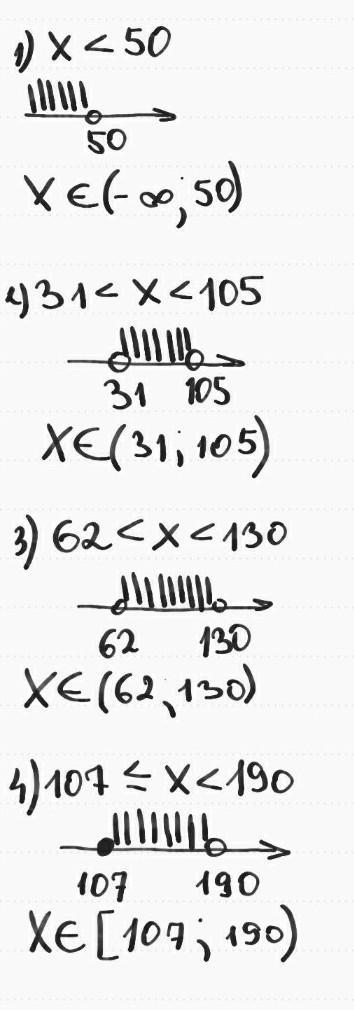 1) X < 50
50
X ∈ (-∞; 50)
2) 31 < X < 105
31 105
X ∈ (31; 105)
3) 62 < X < 130
62 130
X ∈ (62, 130)
4) 107 ≤ X < 190
107 190
X ∈ [107; 190)